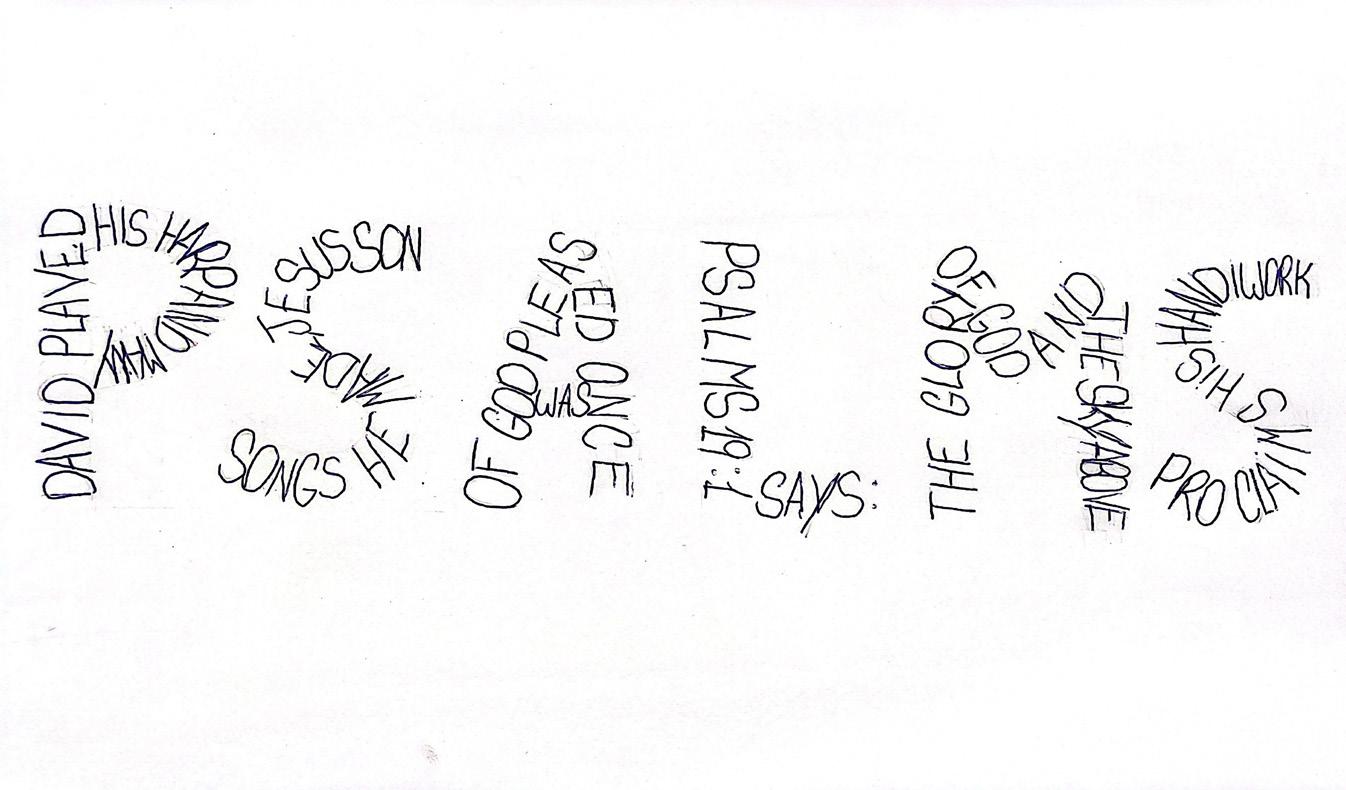 DAVID PLAYED HIS HARP AND MANY
SONGS HE MADE JESUS SON
OF GOD PLEASED ONCE
WAS
PSALMS 19:1 SAYS:
THE GLORY OF GOD AND THE SKY ABOVE
PROCLAIMS HIS HANDIWORK